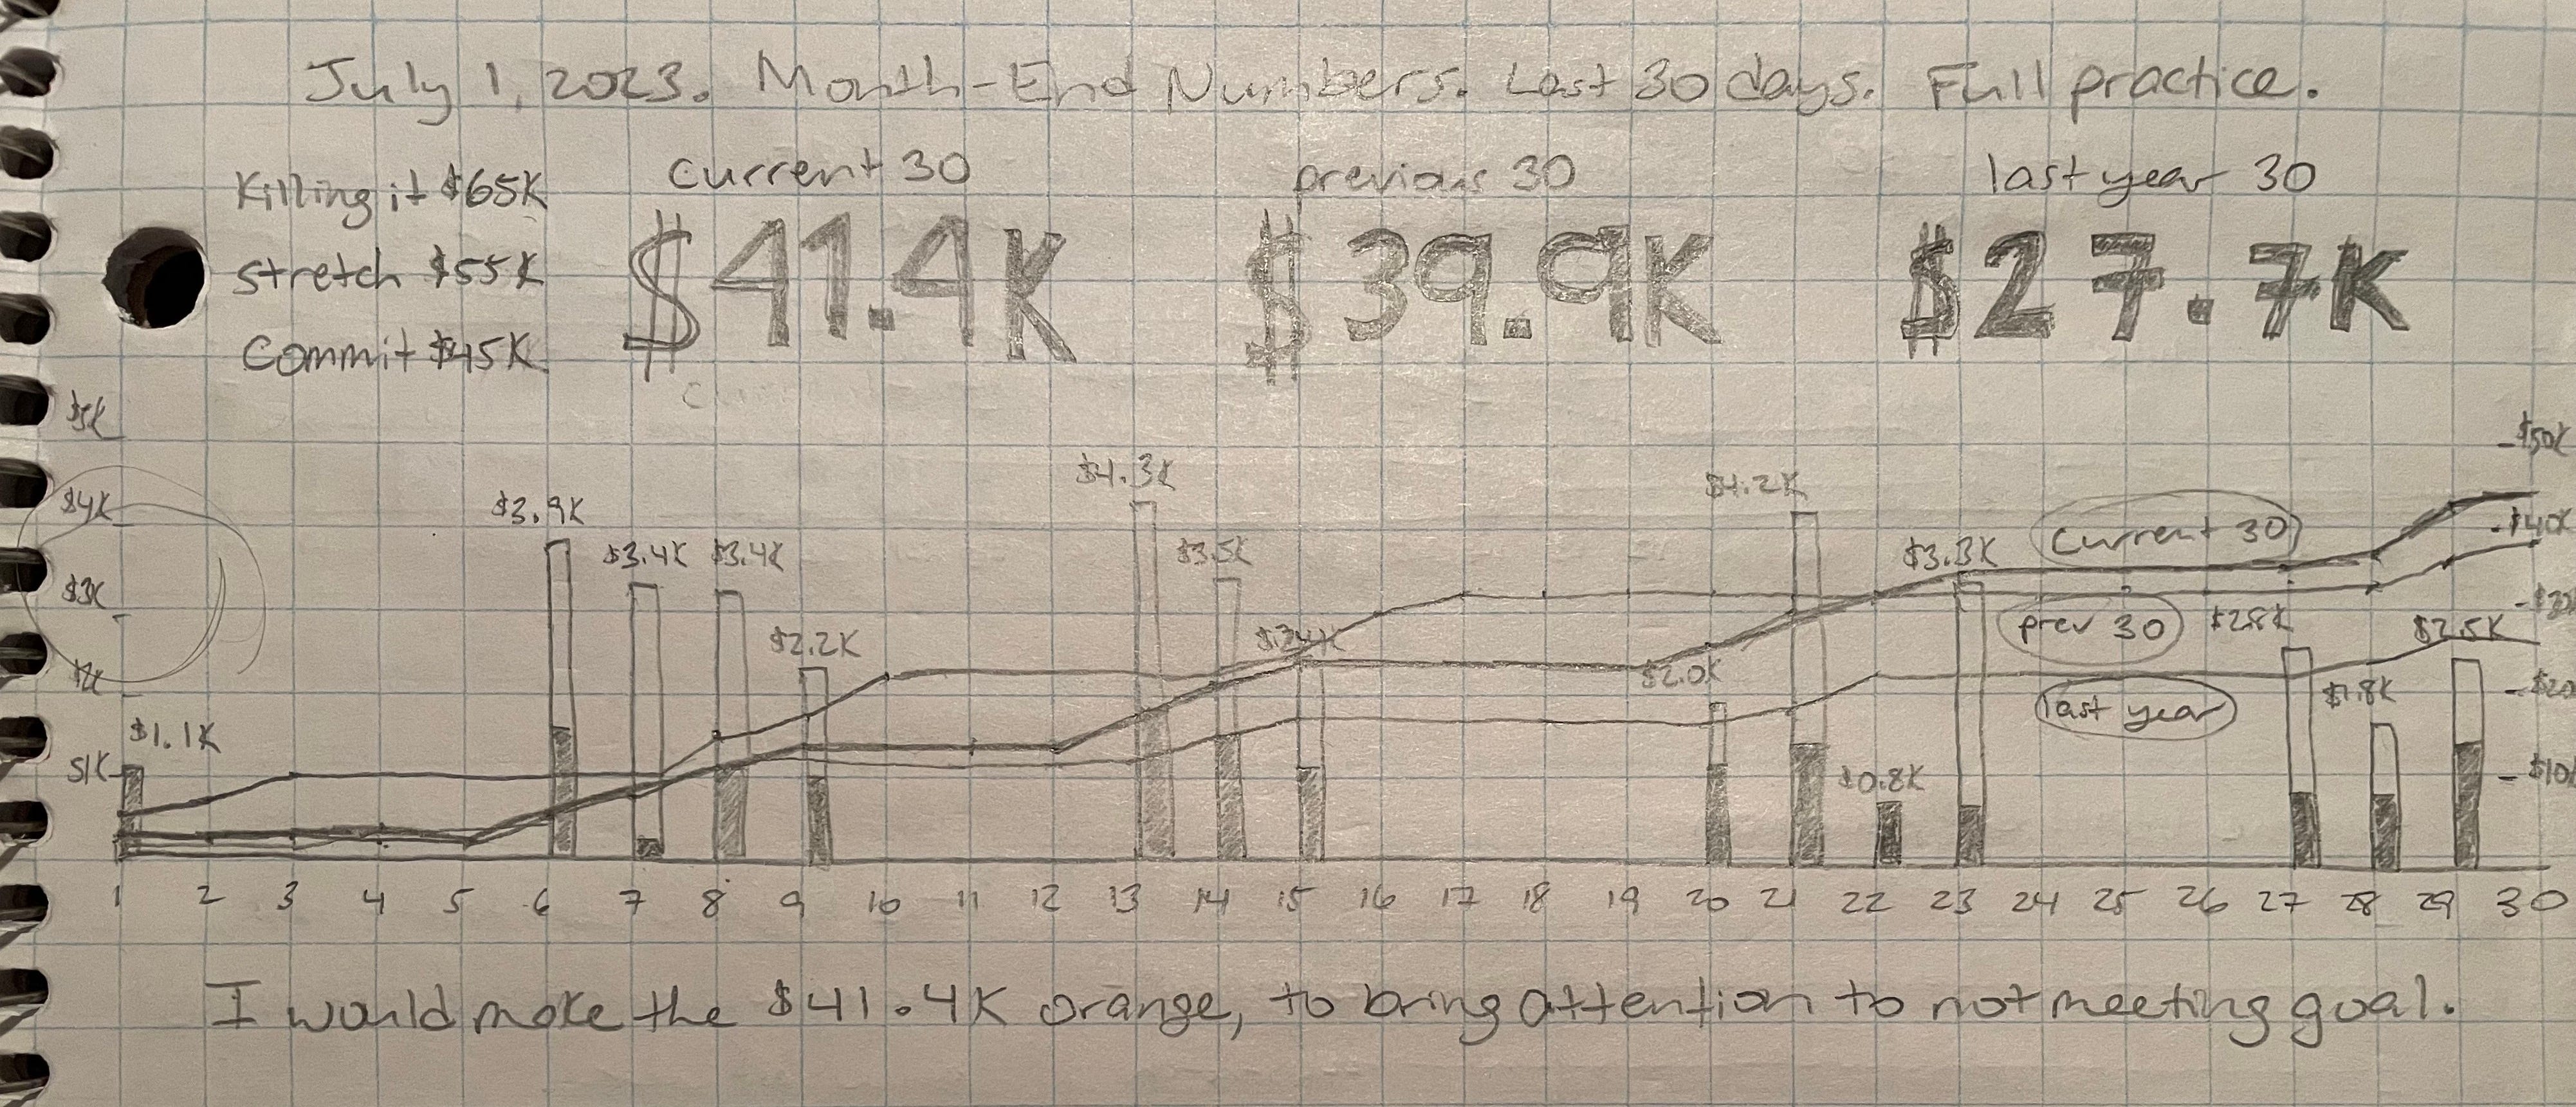 July 1, 2023. Month-End Numbers. Last 30 days. Full practice.
Killing it $65K
stretch $55K
Commit $45K
current 30
$41.4K
previous 30
$39.9K
last year 30
$27.7K
$5K
$4K
$3K
$2K
$1K
$1.1K
$3.9K
$3.4K
$3.4K
$2.2K
$4.3K
$3.5K
$2.4K
$2.0K
$4.2K
$0.8K
$3.3K
$2.8K
$1.8K
$2.5K
current 30
prev 30
last year
$50K
$40K
$30
$20
$10
1 2 3 4 5 6 7 8 9 10 11 12 13 14 15 16 17 18 19 20 21 22 23 24 25 26 27 28 29 30
I would make the $41.4K orange, to bring attention to not meeting goal.